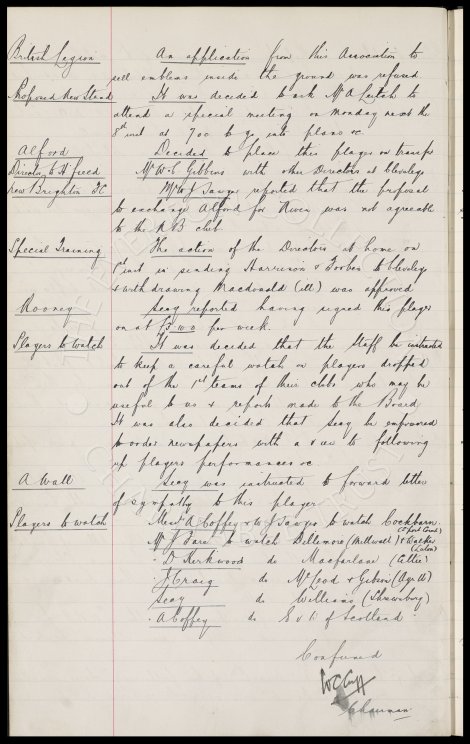 British Legion An application from this Association to
sell emblems inside the ground was refused
Proposed New Stand It was decided to ask Mr A Leitch to
attend a special meeting on Monday next the
8th inst at 7.00 to go into plans &c.
Alford Decided to place this player on transfer
Director to H'field Mr W.C. Gibbins with other Directors at Cleveleys
New Brighton FC Mr W J Sawyer reported that the proposal
to exchange Alford for was not agreeable
to the N B club
Special Training The action of the Directors at home on
1st inst in sending Harrison & Forbes to Cleveleys
& withdrawing Macdonald (ill) was approved
Rooney Secy reported having signed this player
on at £3.0.0 per week.
Players to watch It was decided that the Staff be instructed
to keep a careful watch on players dropped
out of the 1st teams of their clubs who may be
useful to us & reports made to the Board.
It was also decided that Secy be empowered
to order newspapers with a view to following
up players performances &c
A Wall Secy was instructed to forward letter
of sympathy to this player
Players to watch Messrs A Coffey & W J Sawyer to watch Cockburn
Mr J to watch Dillimore (Millwall) &
(Luton)
D Kirkwood do Macfarlane (Celtic)
J Craig do McLeod & Gibson (Ayr U)
Secy do Williams (Shrewsbury)
A Coffey do E v R of Scotland
Confirmed
W C Cuff
Chairman